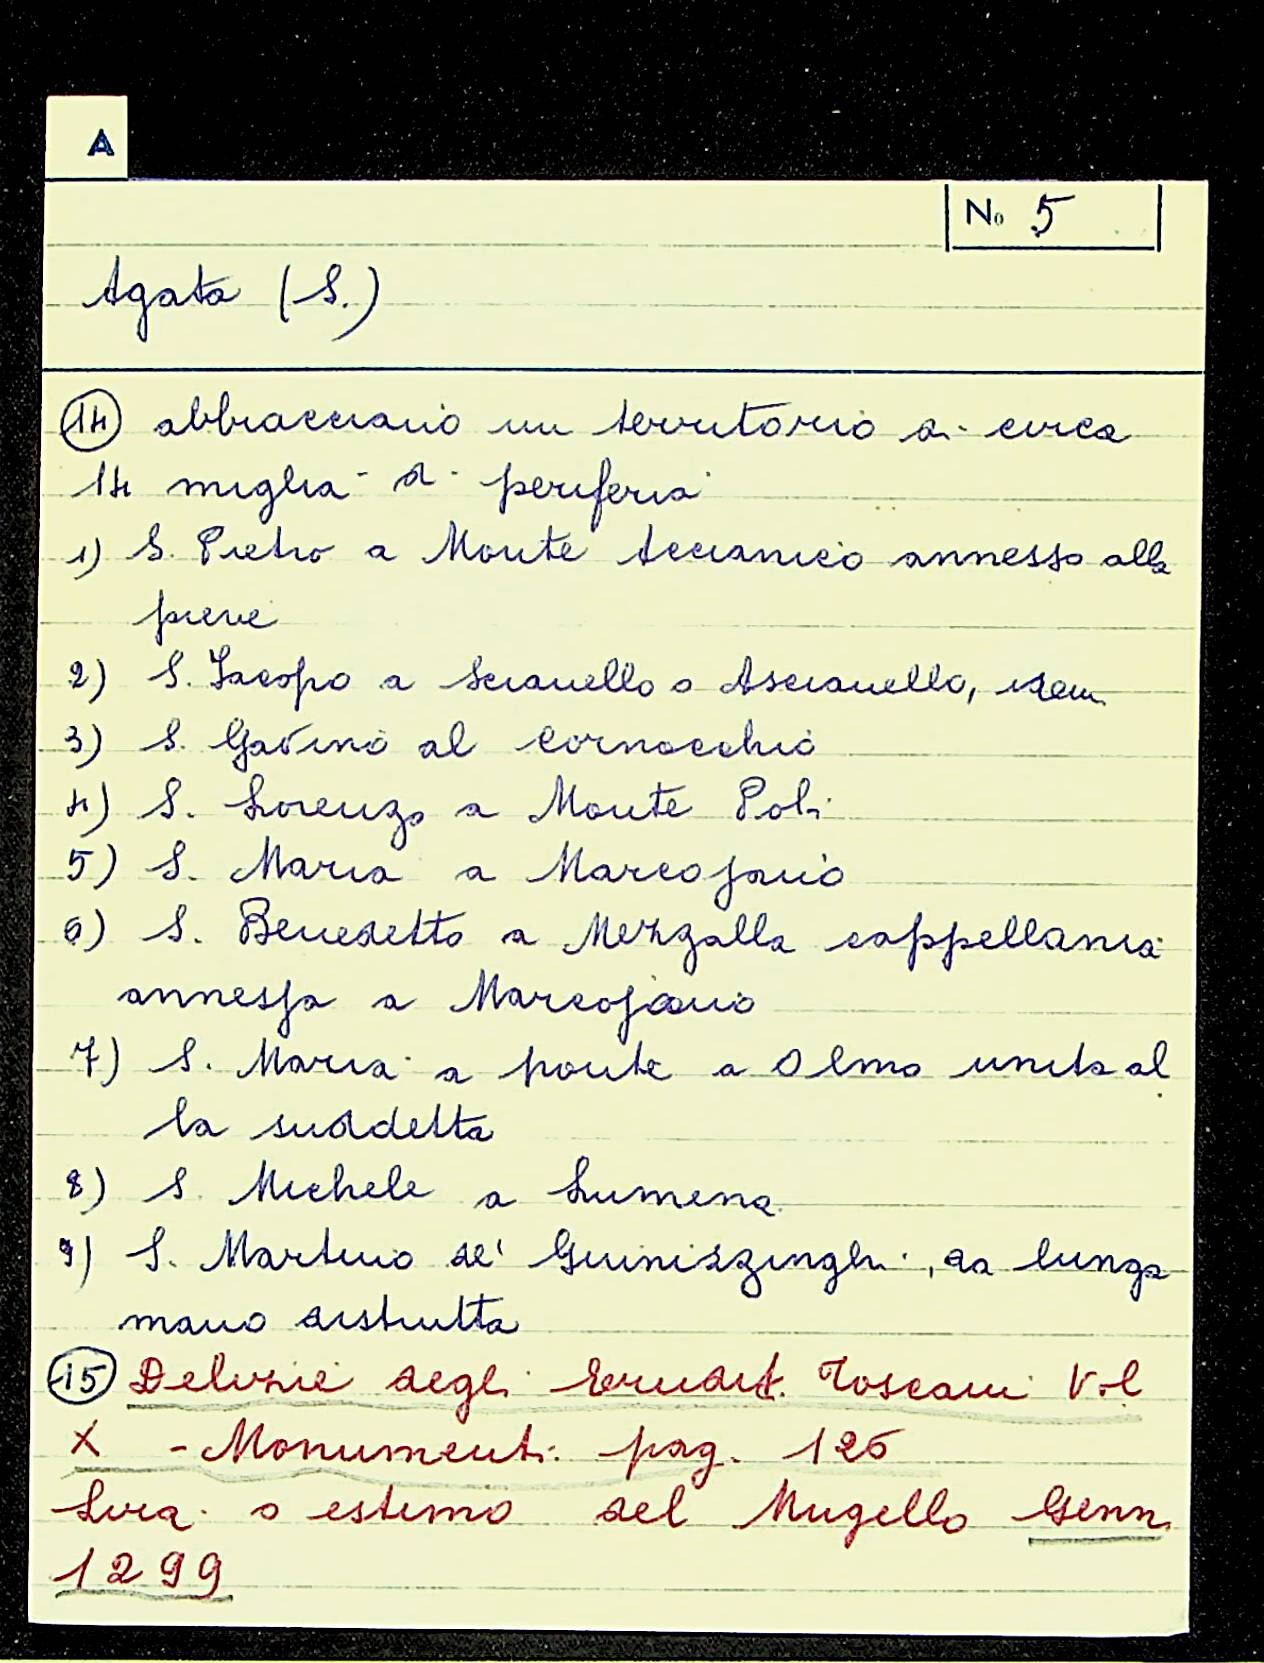 A
No 5
Agata (S.)
14 abbracciano un territorio di circa
14 miglia di periferia
1) S. Pietro a Monte Accianico annesso alla
pieve
2) S. Jacopo a Scianello o Ascianello, idem
3) S. Gavino al Cornocchio
4) S. Lorenzo a Monte Poli
5) S. Maria a Marcojano
6) S. Benedetto a Mezzalla cappellania
annessa a Marcojano
7) S. Maria a ponte a Olmo unita al
la suddetta
8) S. Michele a Lumena
9) S. Martino de' Guinizzinghi, da lunga
mano distrutta
15 Delizie degli Erudit. Toscani Vol
X - Monumenti pag. 126
Lira o estimo del Mugello Genn.
1299